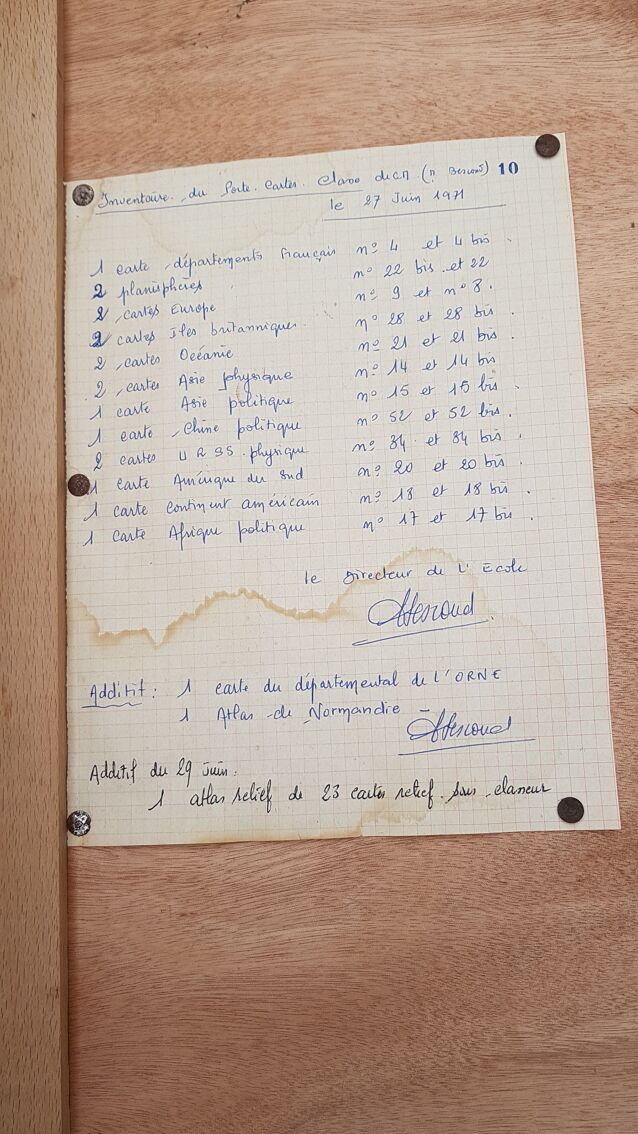 Inventaire du Porte-Cartes Classe de CM (M Bescond) 10
le 27 Juin 1971
1 carte départements français n° 4 et 4 bis.
2 planisphères n° 22 bis et 22
2 cartes Europe n° 9 et n° 8.
2 cartes Iles britanniques n° 28 et 28 bis.
2 cartes Océanie n° 21 et 21 bis.
2 cartes Asie physique n° 14 et 14 bis
1 carte Asie politique n° 15 et 15 bis.
1 carte Chine politique n° 52 et 52 bis.
2 cartes URSS physique n° 34 et 34 bis.
1 carte Amérique du Sud n° 20 et 20 bis.
1 carte continent américain n° 18 et 18 bis.
1 carte Afrique politique n° 17 et 17 bis.
le Directeur de L'Ecole
Additif : 1 carte du départemental de L'ORNE
1 Atlas de Normandie
Additif du 29 juin.
1 atlas relief de 23 cartes relief sous classeur